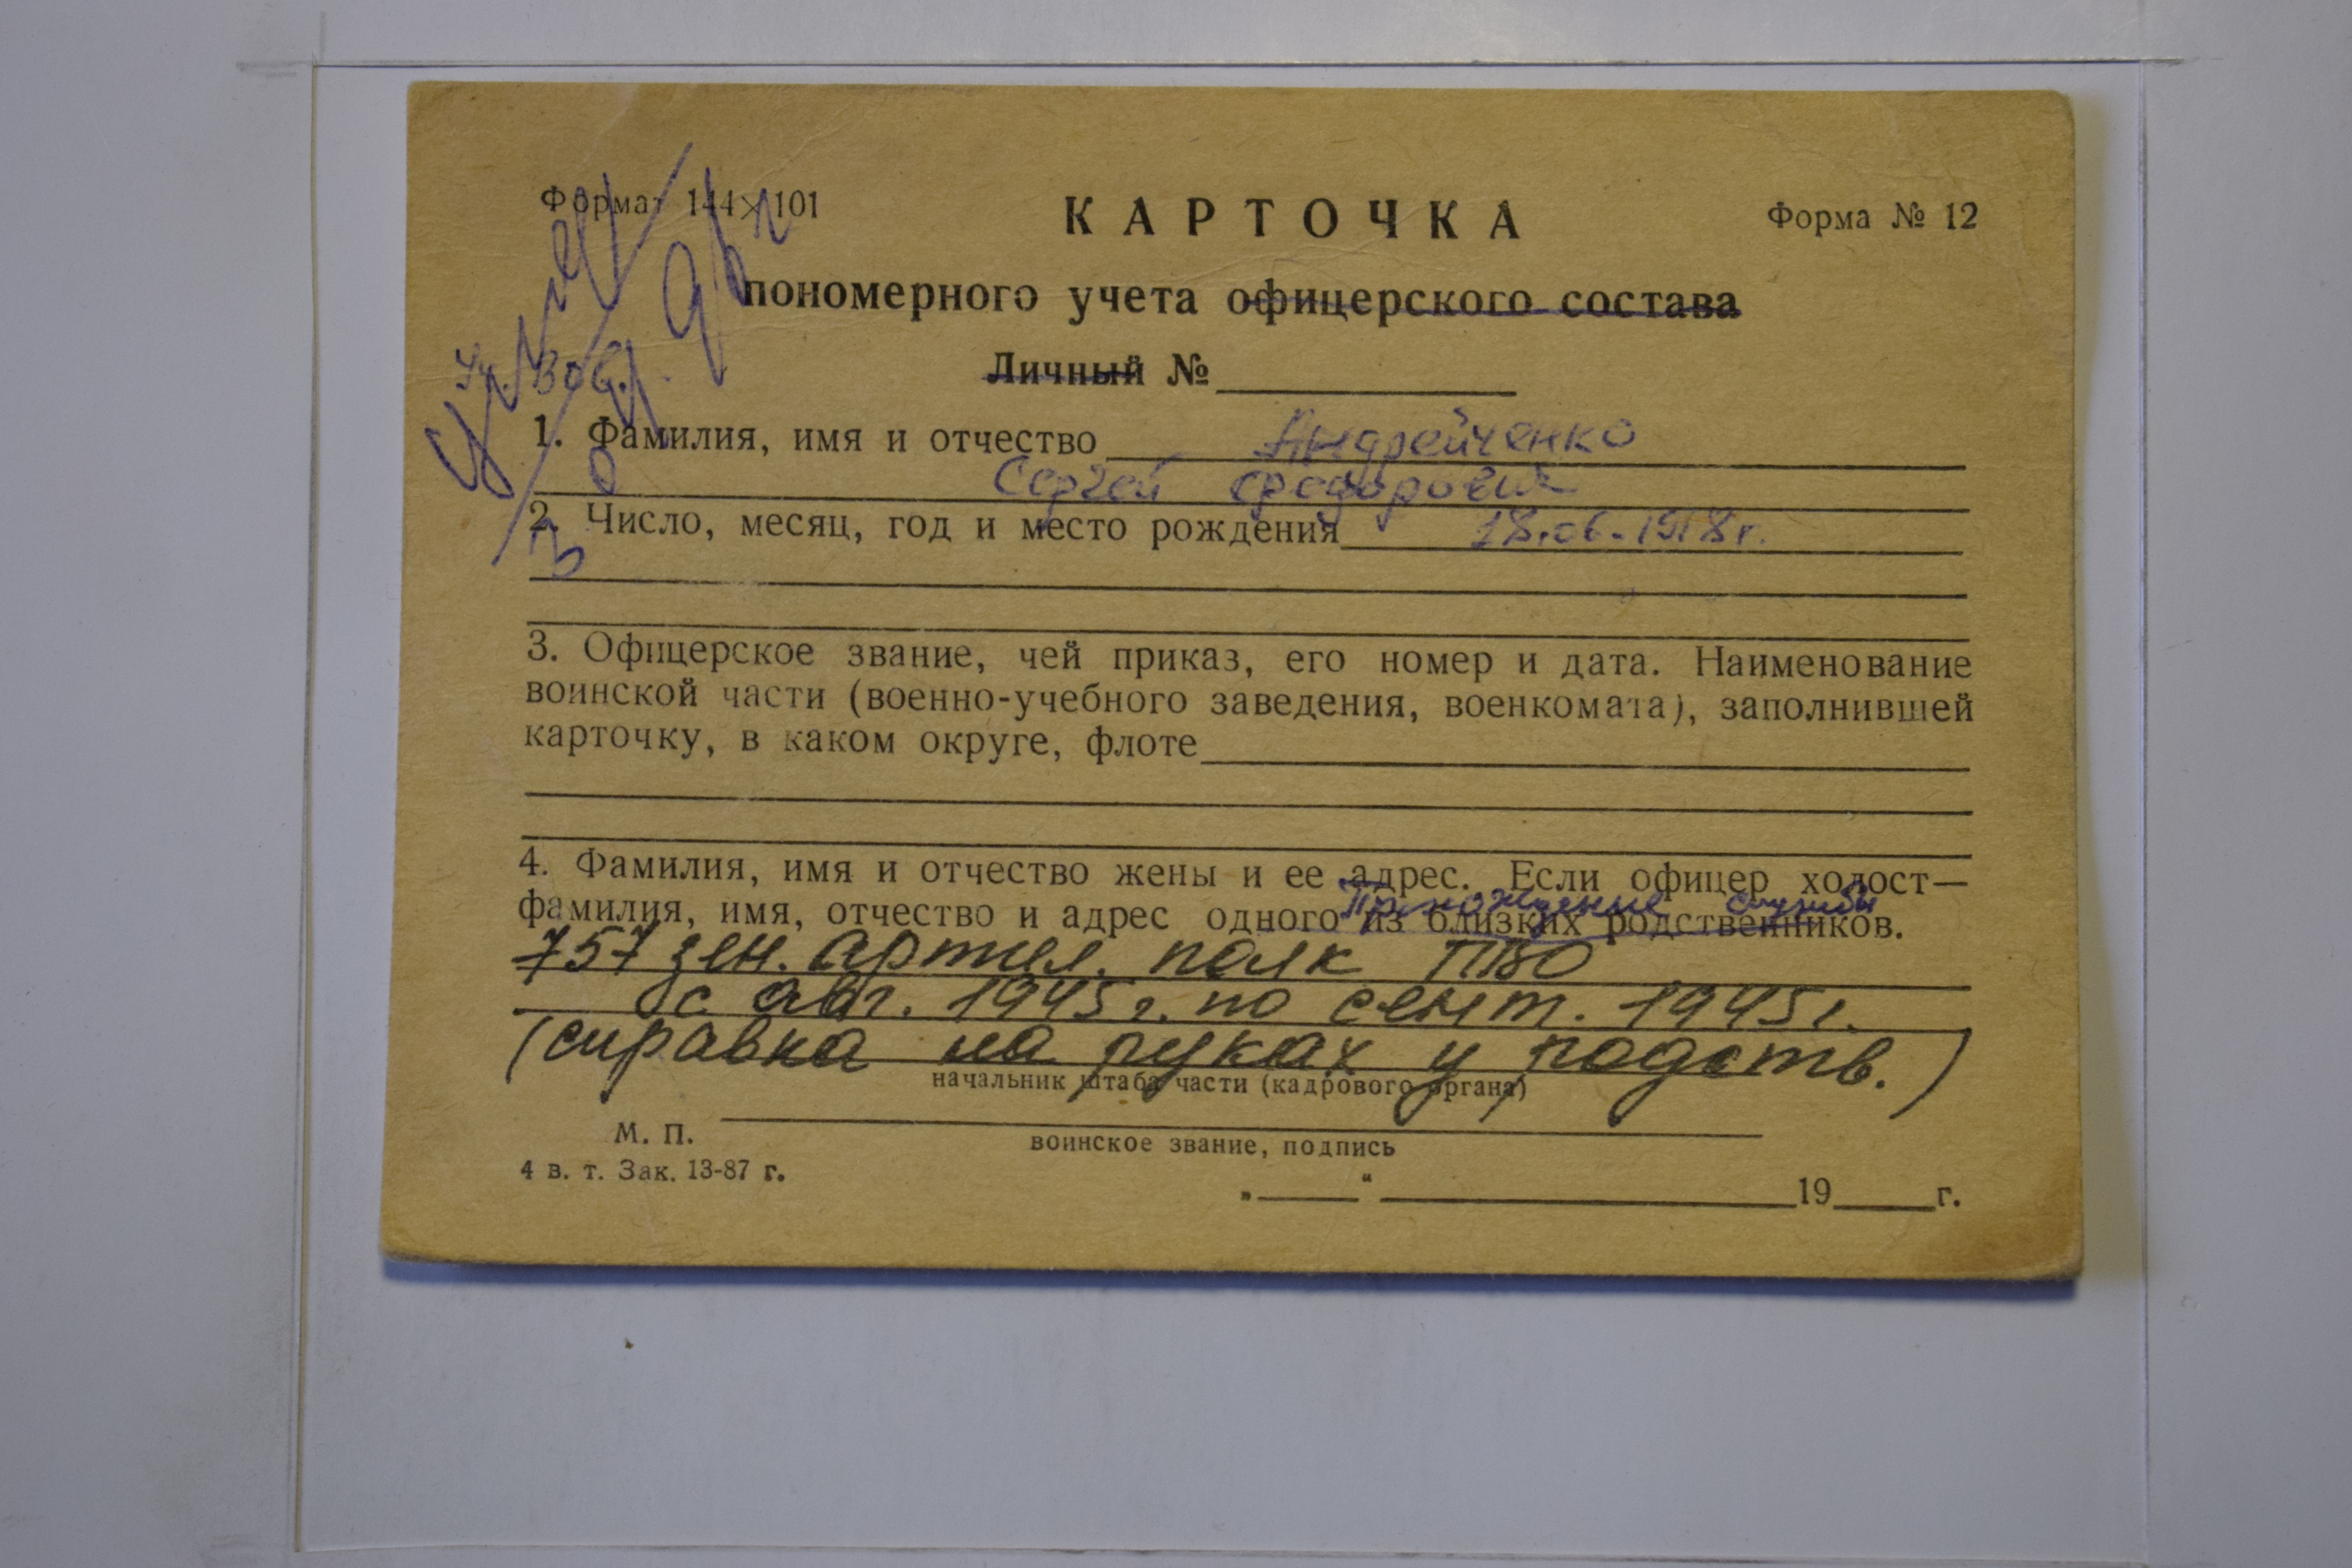 Формат 144×101
КАРТОЧКА
Форма № 12
пономерного учета офицерского состава
Личный №
Уч. ВОВ.
умер
1. Фамилия, имя и отчество Андрейченко
Сергей Федорович
2. Число, месяц, год и место рождения 18.06.1918г.
3. Офицерское звание, чей приказ, его номер и дата. Наименование
воинской части (военно-учебного заведения, военкомата), заполнившей
карточку, в каком округе, флоте
4. Фамилия, имя и отчество жены и ее адрес. Если офицер холост—
Прохождение службы
фамилия, имя, отчество и адрес одного из близких родственников.
757 зен. артил. полк ПВО
с авг. 1945 г. по сент. 1945 г.
(справка на руках у родств.)
начальник штаба части (кадрового органа)
М. П.
воинское звание, подпись
4 в. т. Зак. 13-87 г.
„ “ 19 г.